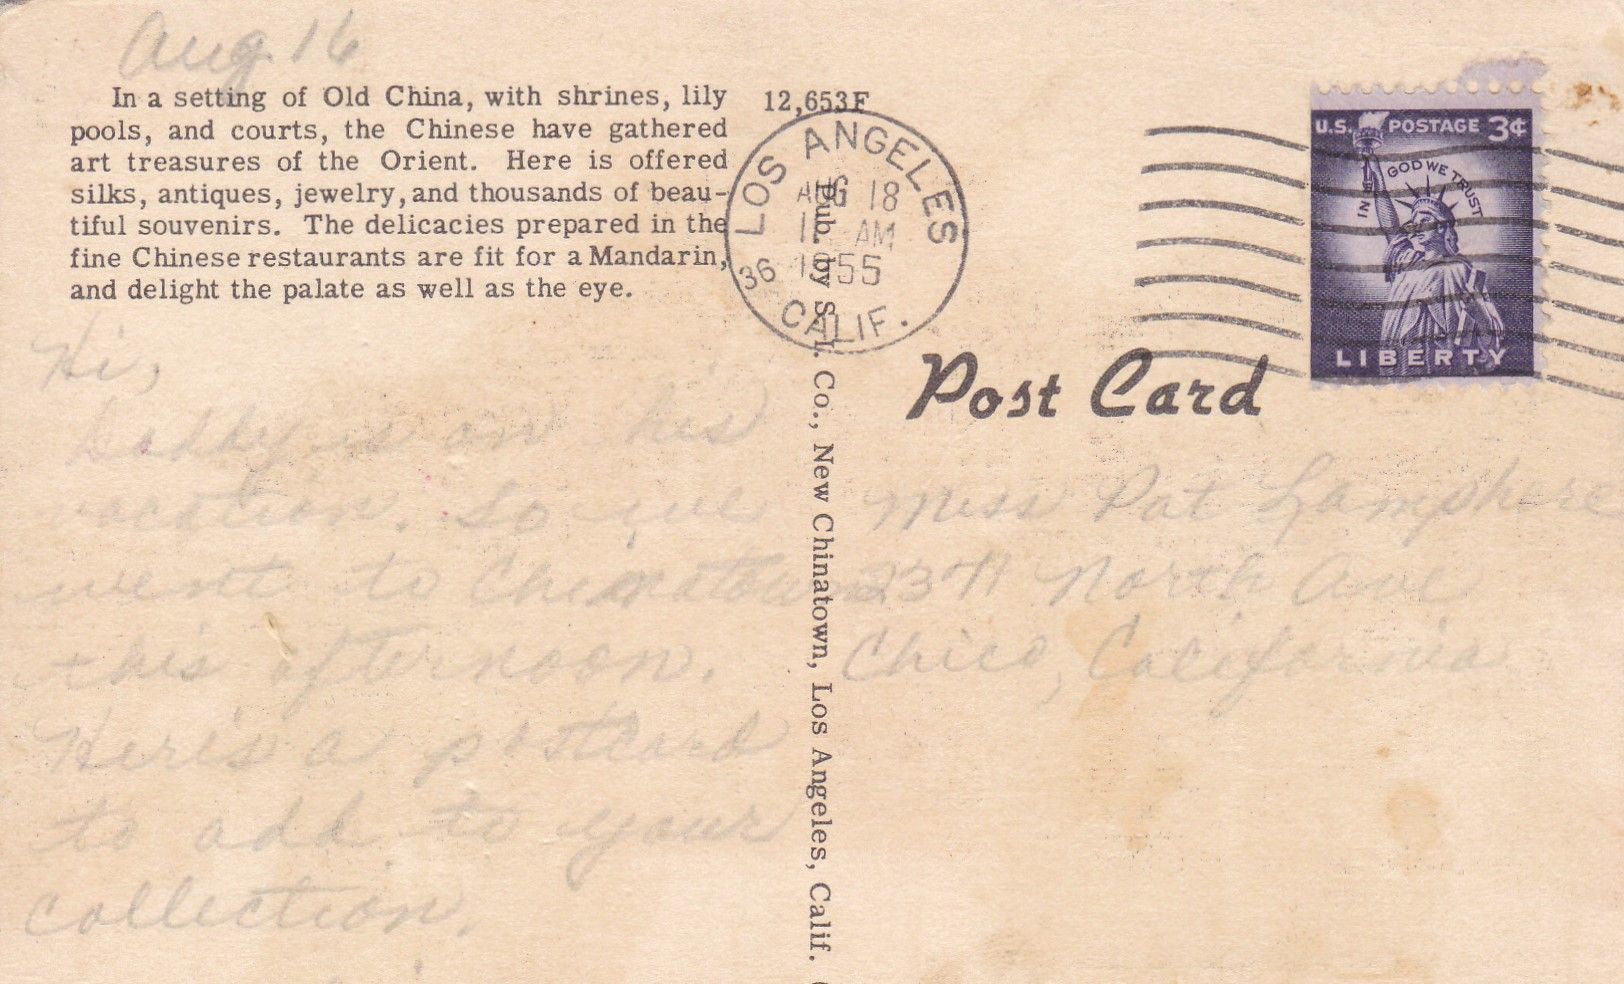 Aug. 16
In a setting of Old China, with shrines, lily
pools, and courts, the Chinese have gathered
art treasures of the Orient. Here is offered
silks, antiques, jewelry, and thousands of beau-
tiful souvenirs. The delicacies prepared in the
fine Chinese restaurants are fit for a Mandarin,
and delight the palate as well as the eye.
Hi,
Daddy is on his
vacation. So we
went to Chinatown
this afternoon.
Here's a postcard
to add to your
collection.
12,653F
LOS ANGELES
AUG 18
AM
1955
36 CALIF.
Pub. by Co., New Chinatown, Los Angeles, Calif.
U.S. POSTAGE 3¢
IN GOD WE TRUST
LIBERTY
Post Card
Miss Pat Lamphere
North Ave
Chico, California